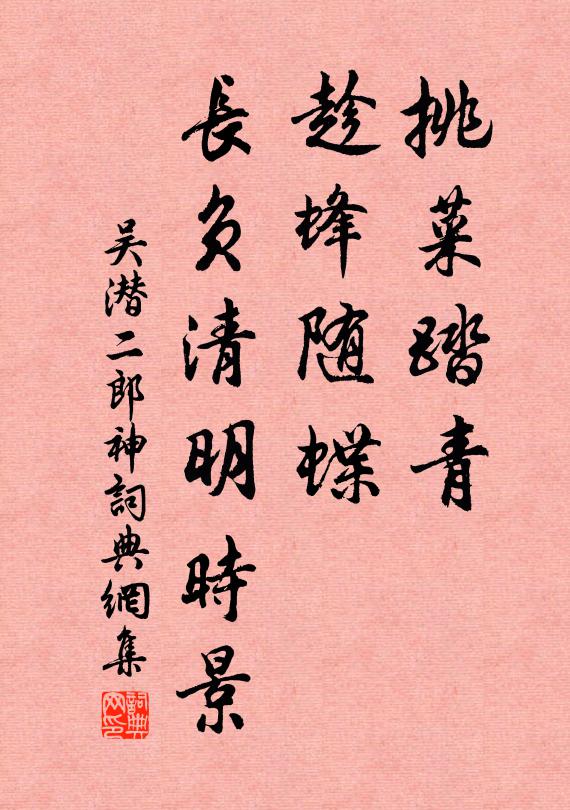 挑菜踏青
趁蜂随蝶
長負清明時景
吴潜二郎神詞典網集
詞典网印